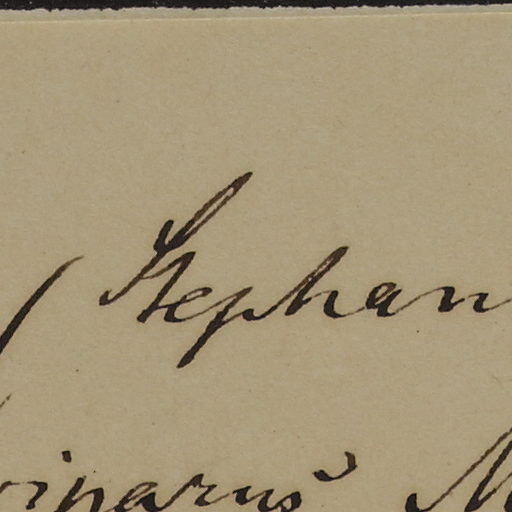 ( Stephan
viparus M